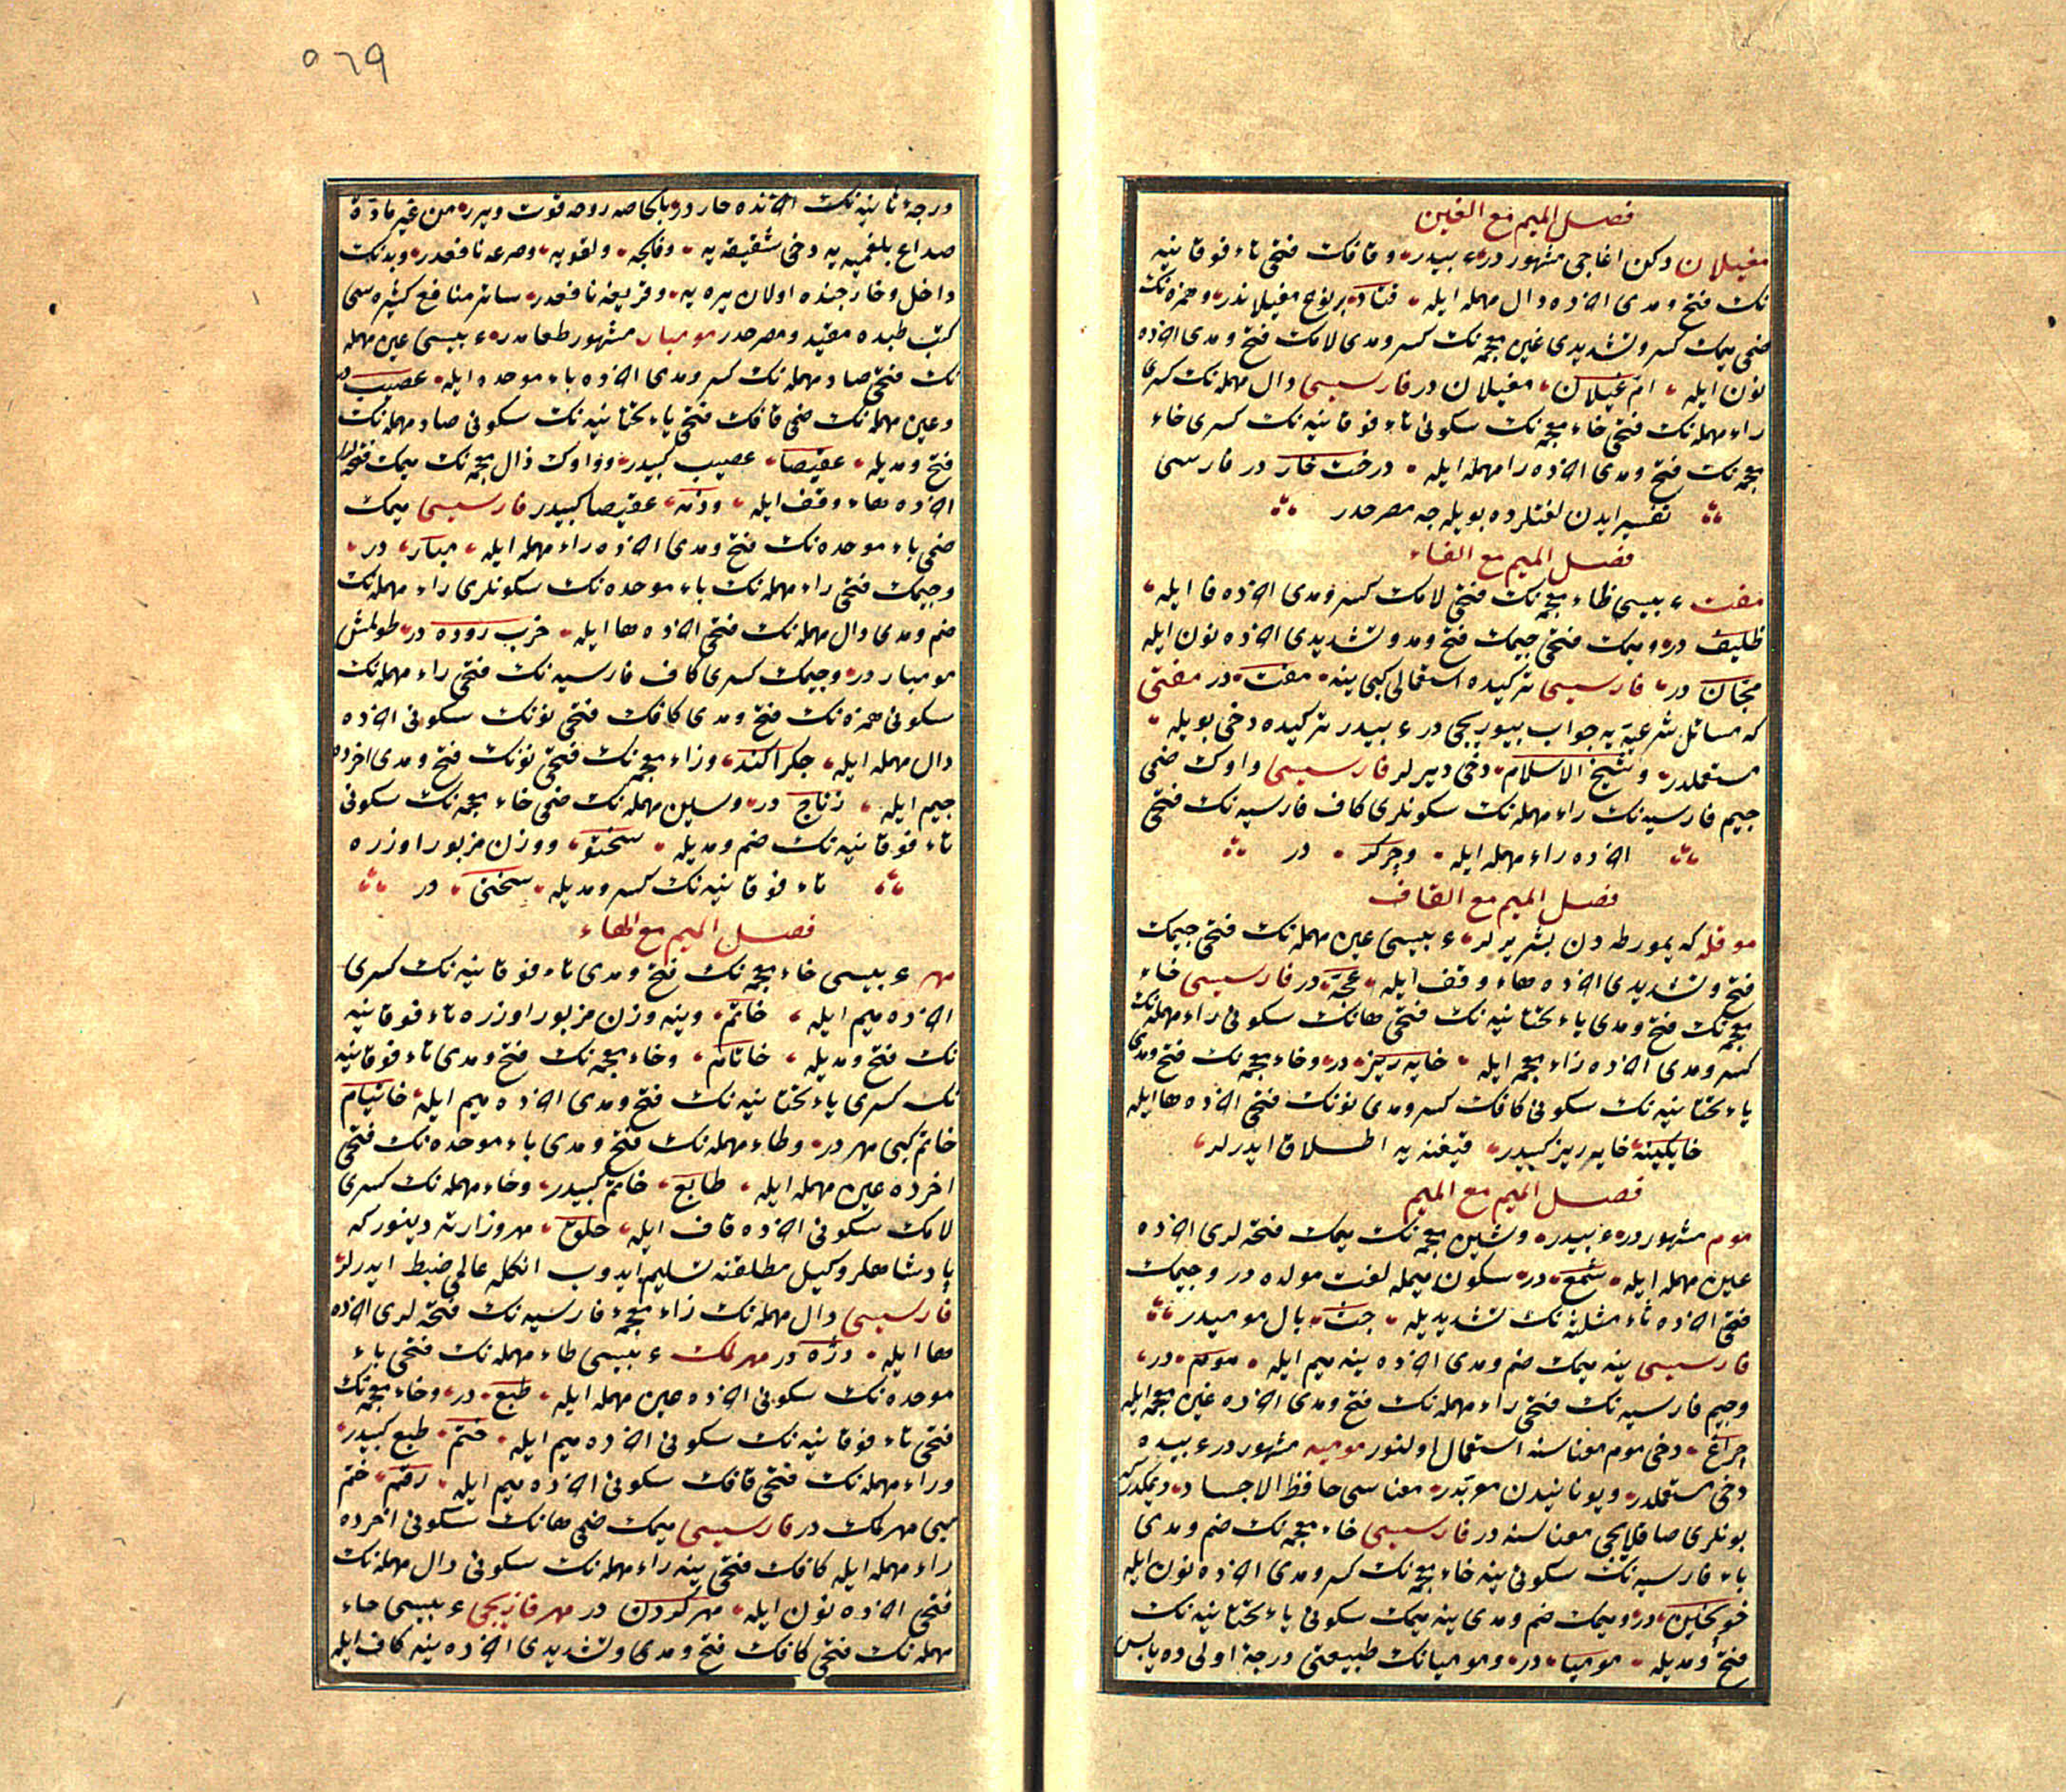 فصل الميم مع الغين
مغيلان دكن اغاجى مشهوردر عربيدر وقافك فتحى تاء فوقانيه
نك فتح ومدى اخرده دال مهمله ايله قتاد بر نوع مغيلاندر وهمزه نك
ضمى ميمك كسر وتشديدى غين معجمه نك كسر ومدى لامك فتح ومدى اخرده
نون ايله ام غيلان مغيلان در فارسيسى دال مهمله نك كسرى
راء مهمله نك فتحى خاء معجمه نك سكونى تاء فوقانيه نك كسرى خاء
معجمه نك فتح ومدى اخرده را مهمله ايله درخت خار در فارسى
تفسير ايدن لغتلرده بويله جه مصرحدر
فصل الميم مع الفاء
مفت عربيسى ظاء معجمه نك فتحى لامك كسر ومدى اخرده فا ايله
ظليف در وميمك فتحى جيمك فتح ومد وتشديدى اخرده نون ايله
مجان در فارسيسى تركيده استعمالى كبى ينه مفت در مفتى
كه مسائل شرعيه يه جواب بيوريجى در عربيدر تركيده دخى بويله
مستعملدر وشيخ الاسلام دخى ديرلر فارسيسى واوك ضمى
جيم فارسيه نك راء مهمله نك سكونلرى كاف فارسيه نك فتحى
اخرده راء مهمله ايله وچركر در
فصل الميم مع القاف
موقله كه يمورطه دن بشيريرلر عربيسى عين مهمله نك فتحى جيمك
فتح وتشديدى اخرده هاء وقف ايله عجه در فارسيسى خاء
معجمه نك فتح ومدى ياء تحتانيه نك فتحى هانك سكونى راء مهمله نك
كسر ومدى اخرده زاء معجمه ايله خايه ريز در وخاء معجمه نك فتح ومدى
ياء تحتانيه نك سكونى كافك كسر ومدى نونك فتحى اخرده ها ايله
خايكينه خايه ريز كبيدر قيغنه يه اطلاق ايدرلر
فصل الميم مع الميم
موم مشهوردر عربيدر وشين معجمه نك ميمك فتحه لرى اخرده
عين مهمله ايله شمع در سكون ميمله لغت مولده در وجيمك
فتحى اخرده ثاء مثلثه نك تشديديله جث بال موميدر
فارسيسى ينه ميمك ضم ومدى اخرده ينه ميم ايله موم در
وجيم فارسيه نك فتحى راء مهمله نك فتح ومدى اخرده غين معجمه ايله
چراغ دخى موم معناسنه استعمال اولنور موميه مشهوردر عربيده
دخى مستعملدر ويونانيدن معربدر معناسى حافظ الاجساد ديمكدر
بونلرى صاقلايجى معناسنه در فارسيسى خاء معجمه نك ضم ومدى
باء فارسيه نك سكونى ينه خاء معجمه نك كسر ومدى اخرده نون ايله
در وميمك ضم ومدى ينه ميمك سكونى ياء تحتانيه نك
فتح ومديله موميا در وموميانك طبيعتى درجه اولى ده يابس
٥٦٩
درجه ثانيه نك اخرنده حاردر بالخاصه روحه قوت ويرر من غير مادة
صداع بلغميه يه دخى شقيقه يه وفالجه ولقويه وصرعه نافعدر وبدنك
داخل وخارجنده اولان يره يه نافعدر سائر منافع كثيره سى
كتب طبده مقيد ومصرحدر مومبار مشهور طعامدر عربيسى عين مهمله
نك فتحى صاد مهمله نك كسر ومدى اخرده باء موحده ايله عصيب در
وعين مهمله نك ضمى قافك فتحى ياء تحتانيه نك سكونى صاد مهمله نك
فتح ومديله عقيصا عصيب كبيدر وواوك ذال معجمه نك ميمك فتحه لرى
اخرده هاء وقف ايله وذمه عقيصا كبيدر فارسيسى ميمك
ضمى باء موحده نك فتح ومدى اخرده راء مهمله ايله مبار در
وجيمك فتحى راء مهمله نك باء موحده نك سكونلرى راء مهمله نك
ضم ومدى دال مهمله نك فتحى اخرده ها ايله جرب روده در طولمش
مومبار در وجيمك كسرى كاف فارسيه نك فتحى راء مهمله نك
سكونى همزه نك فتح ومدى كافك فتحى نونك سكونى اخرده
دال مهمله ايله جكراكند وزاء معجمه نك فتحى نونك فتح ومدى اخرده
جيم ايله زناج در وسين مهمله نك ضمى خاء معجمه نك سكونى
تاء فوقانيه نك ضم ومديله سختو ووزن مزبور اوزره
تاء فوقانيه نك كسر ومديله سختى در
فصل الميم مع الهاء
مهر عربيسى خاء معجمه نك فتح ومدى تاء فوقانيه نك كسرى
اخرده ميم ايله خاتم وينه وزن مزبور اوزره تاء فوقانيه
نك فتح ومديله خاتام وخاء معجمه نك فتح ومدى تاء فوقانيه
نك كسرى ياء تحتانيه نك فتح ومدى اخرده ميم ايله خاتيام
خاتم كبى مهر در وطاء مهمله نك فتح ومدى باء موحده نك فتحى
اخرده عين مهمله ايله طابع خاتم كبيدر وحاء مهمله نك كسرى
لامك سكونى اخرده قاف ايله حلق مهر وزارته دينور كه
پادشاهلر وكيل مطلقنه تسليم ايدوب انكله عالمى ضبط ايدرلر
فارسيسى دال مهمله نك زاء معجمه فارسيه نك فتحه لرى اخرده
ها ايله دژه در مهرلمك عربيسى طاء مهمله نك فتحى باء
موحده نك سكونى اخرده عين مهمله ايله طبع در وخاء معجمه نك
فتحى تاء فوقانيه نك سكونى اخرده ميم ايله ختم طبع كبيدر
وراء مهمله نك فتحى قافك سكونى اخرده ميم ايله رقم ختم
كبى مهرلمك در فارسيسى ميمك ضمى هانك سكونى اخرده
راء مهمله ايله كافك فتحى ينه راء مهمله نك سكونى دال مهمله نك
فتحى اخرده نون ايله مهر كردن در مهر قازيجى عربيسى حاء
مهمله نك فتحى كافك فتح ومدى وتشديدى اخرده ينه كاف ايله